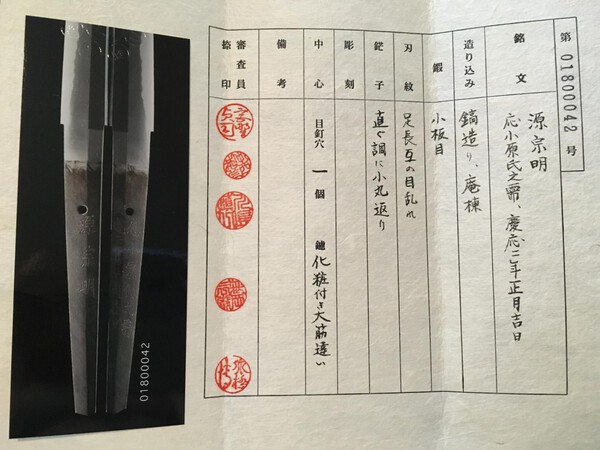 第01800042号
銘文 源宗明
応小原氏之需、慶応二年正月吉日
造り込み 鎬造り、庵棟
鍛 小板目
刃紋 足長互の目乱れ
鋩子 直ぐ調に小丸返り
彫刻
中心 目釘穴 一個 鑢 化粧付き大筋違い
備考
審査員
捺印
01800042